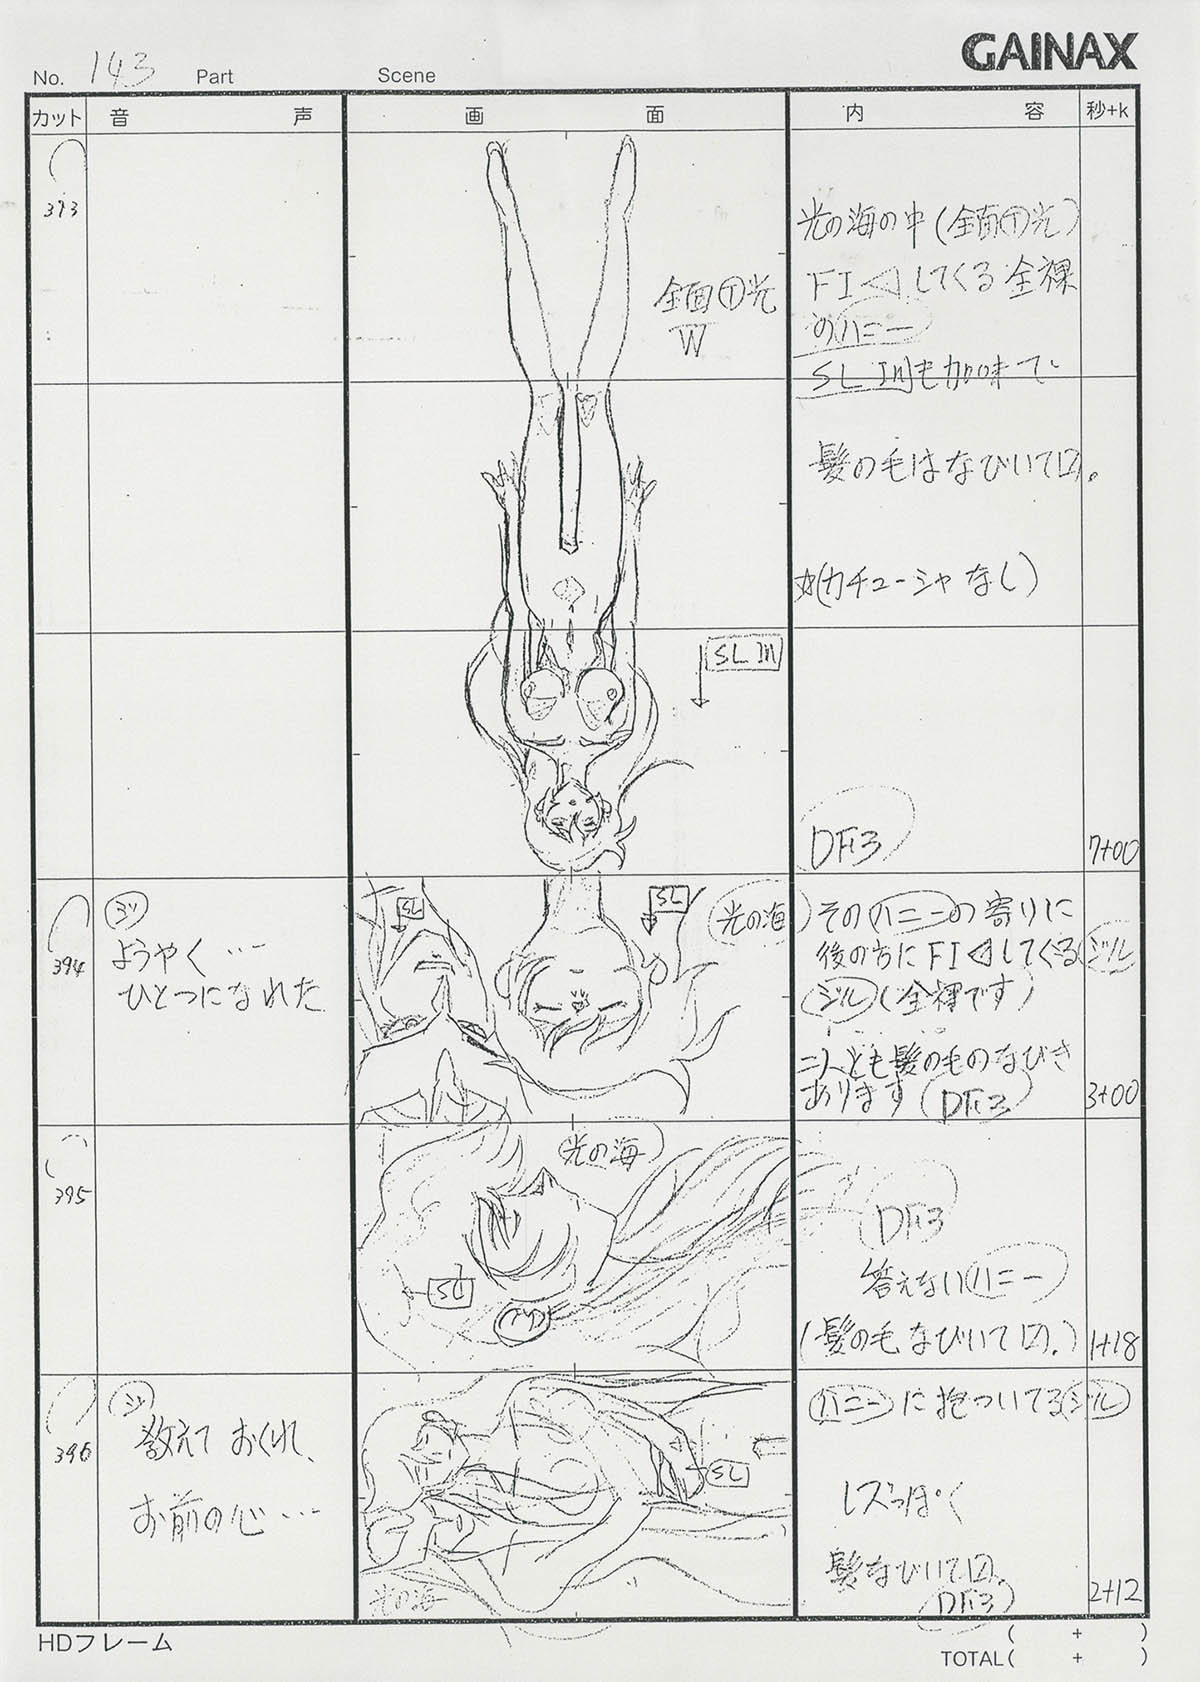 GAINAX
No. 143 Part Scene
カット 音 声 画 面 内 容 秒+k
393
全面Ⓣ光
W
SL IN
光の海の中(全面Ⓣ光)
FI◁してくる全裸
のハニー
SL INも加味して
髪の毛はなびいて
☆(カチューシャなし)
DF3
7+00
394
ジル
ようやく…
ひとつになれた
SL
SL
光の海
そのハニーの寄りに
後の方にFI◁してくる ジル
ジル(全裸です)
二人とも髪の毛のなびき
あります DF3
3+00
395
光の海
SL
DF3
答えないハニー
(髪の毛なびいて
1+18
396
教えておくれ、
お前の心…
SL
光の海
ハニーに抱ついてるジル
レズっぽく
髪なびいて
DF3
2+12
HDフレーム
( + )
TOTAL( + )